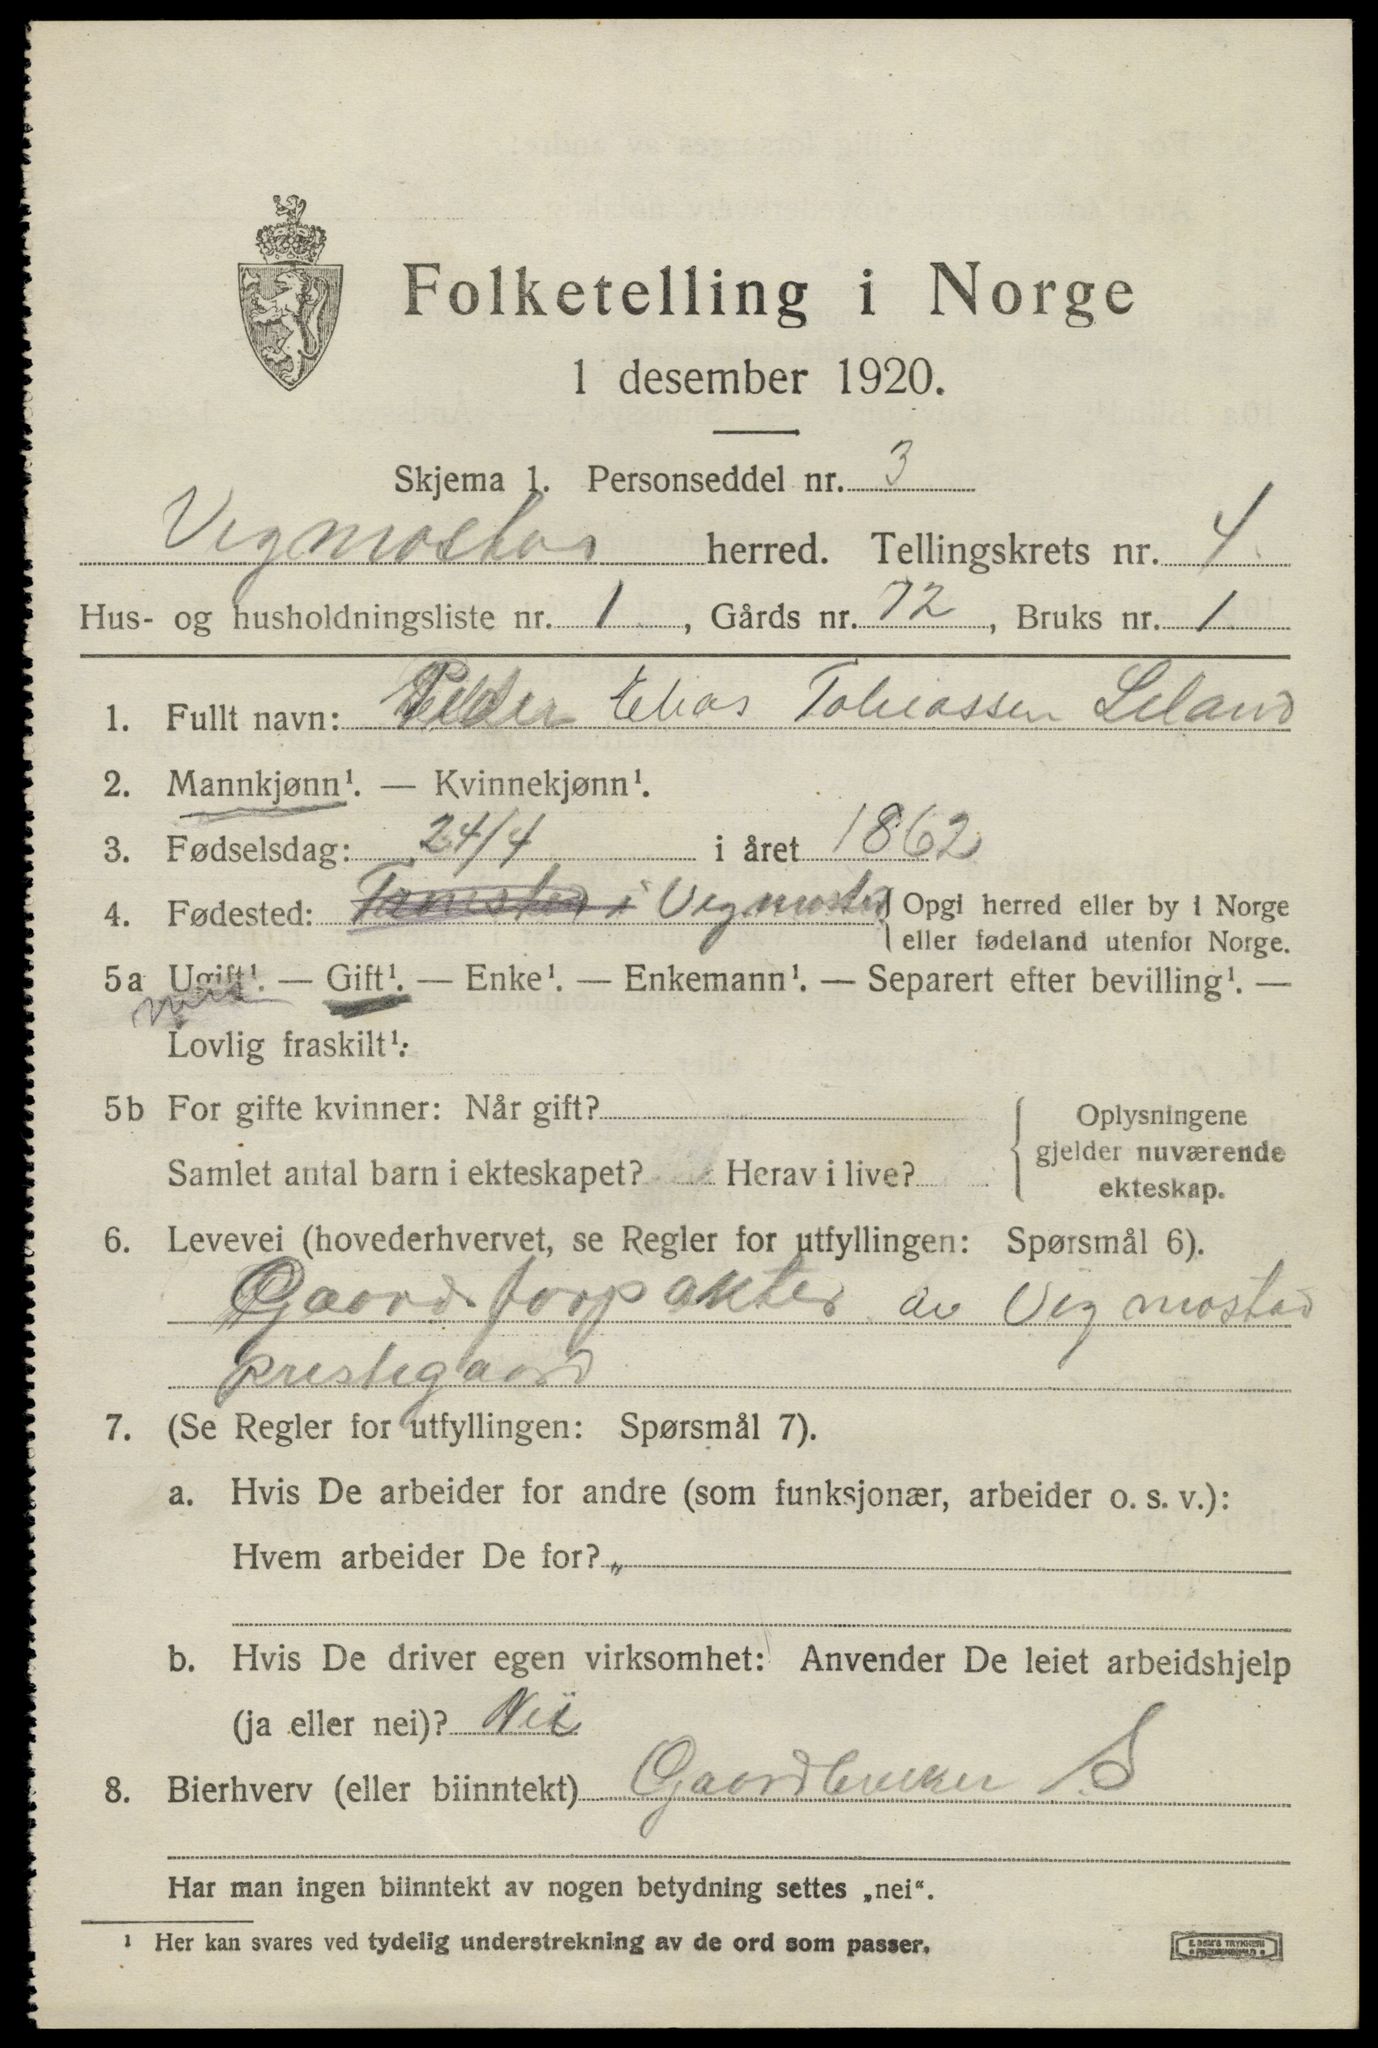 Folketelling i Norge
1 desember 1920.
Skjema 1. Personseddel nr. 3
Vegmostad herred. Tellingskrets nr. 4
Hus- og husholdningsliste nr. 1, Gårds nr. 72, Bruks nr. 1
1. Fullt navn: Peder Elias Tobiassen Leland
2. Mannkjønn¹. — Kvinnekjønn¹.
3. Fødselsdag: 24/4 i året 1862
4. Fødested: i Vegmostad { Opgi herred eller by i Norge
eller fødeland utenfor Norge.
5a Ugift¹. — Gift¹. — Enke¹. — Enkemann¹. — Separert efter bevilling¹. —
Lovlig fraskilt¹:
5b For gifte kvinner: Når gift?
Samlet antal barn i ekteskapet? Herav i live?
{ Oplysningene
gjelder nuværende
ekteskap.
6. Levevei (hovederhvervet, se Regler for utfyllingen: Spørsmål 6).
Gaardsforpakter av Vegmostad
prestegaard
7. (Se Regler for utfyllingen: Spørsmål 7).
a. Hvis De arbeider for andre (som funksjonær, arbeider o. s. v.):
Hvem arbeider De for? „
b. Hvis De driver egen virksomhet: Anvender De leiet arbeidshjelp
(ja eller nei)? Nei
8. Bierhverv (eller biinntekt) Gaardbruker S
Har man ingen biinntekt av nogen betydning settes „nei“.
¹ Her kan svares ved tydelig understrekning av de ord som passer.